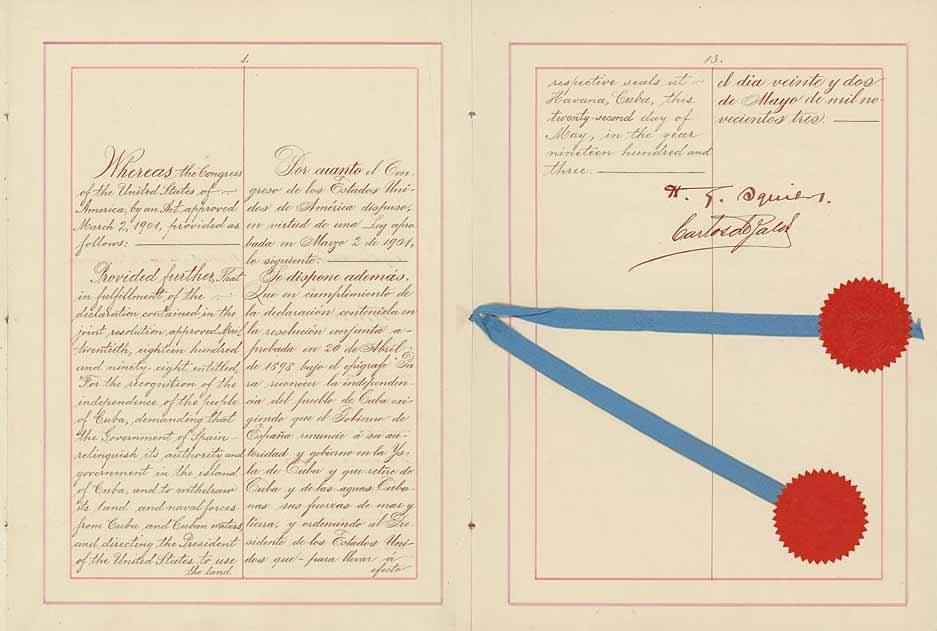 1.
Whereas the Congress
of the United States of
America, by an Act approved
March 2, 1901, provided as
follows:
Provided further, That
in fulfillment of the
declaration contained in the
joint resolution approved
twentieth, eighteen hundred
and ninety-eight, entitled,
"For the recognition of the
independence of the people
of Cuba, demanding that
the Government of Spain
relinquish its authority and
government in the island
of Cuba, and to withdraw
its land and naval forces
from Cuba and Cuban waters,
and directing the President
of the United States to use
the land
Por cuanto el Con-
greso de los Estados Uni-
dos de América dispuso,
en virtud de una Ley apro-
bada en Marzo 2 de 1901,
lo siguiente:
Se dispone además,
Que en cumplimiento de
la declaración contenida en
la resolución conjunta a-
probada en 20 de Abril
de 1898 bajo el epígrafe "Pa
ra reconocer la independen-
cia del pueblo de Cuba exi-
giendo que el Gobierno de
España renuncie á su au-
toridad y gobierno en la Ys-
la de Cuba y que retire de
Cuba y de las aguas Cuba-
nas sus fuerzas de mar y
tierra, y ordenando al Pre-
sidente de los Estados Uni-
dos que para llevar á
efecto
13.
respective seals at
Havana, Cuba, this
twenty-second day of
May, in the year
nineteen hundred and
three.
el dia veinte y dos
de Mayo de mil no-
vecientos tres.
H. G. Squiers.
Carlos de Zaldo